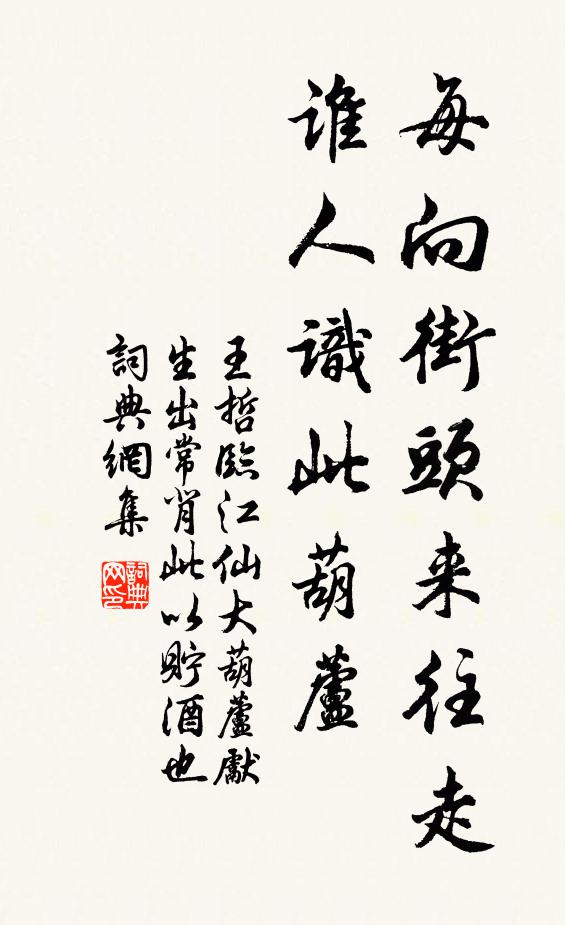 每向街頭来往走
誰人識此葫蘆
王哲臨江仙大葫蘆獻
生出常肖此以貯酒也
詞典網集
詞典
网印